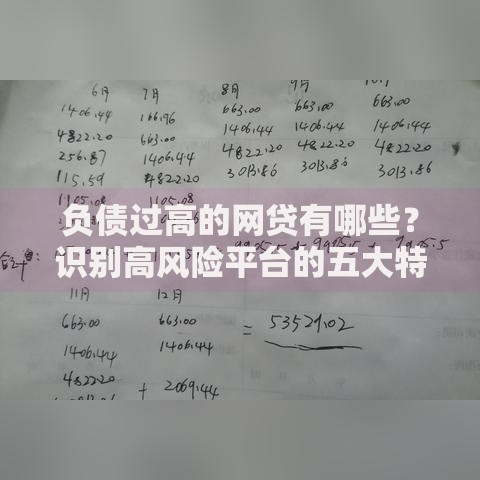 6月 7月 8月 9月
1406.44 166.96 663.00 663.00 663.00
4822.20 663.00 1406.44 1406.44 1406.44
256.87 1406.44 4822.20 4822.20 4822.20
115.59 4822.20 3013.86 3013.86 3013.86
1105.08 1105.08
负债过高的网贷有哪些？
识别高风险平台的五大特
11月 12月
663.00 663.00 = 53529.02
1406.44 1406.44
4822.20 + 2069.44